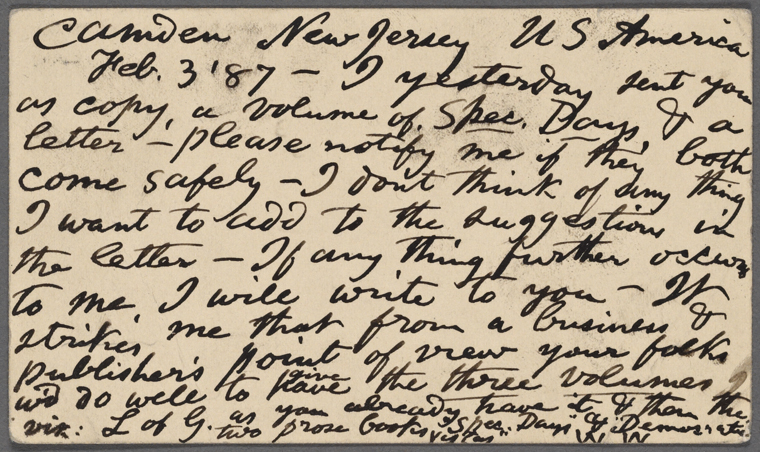 Camden New Jersey U S America
Feb. 3 '87 — I yesterday sent you
as copy, a volume of Spec. Days & a
letter — please notify me if they both
come safely — I dont think of any thing
I want to add to the suggestions in
the letter — If any thing further occurs
to me, I will write to you — It
strikes me that from a business &
publisher's point of view your folks
w'd do well to give the three volumes
viz: L of G. as you already have it, & then the
two prose books "Spec. Days" & "Democratic
Vistas"